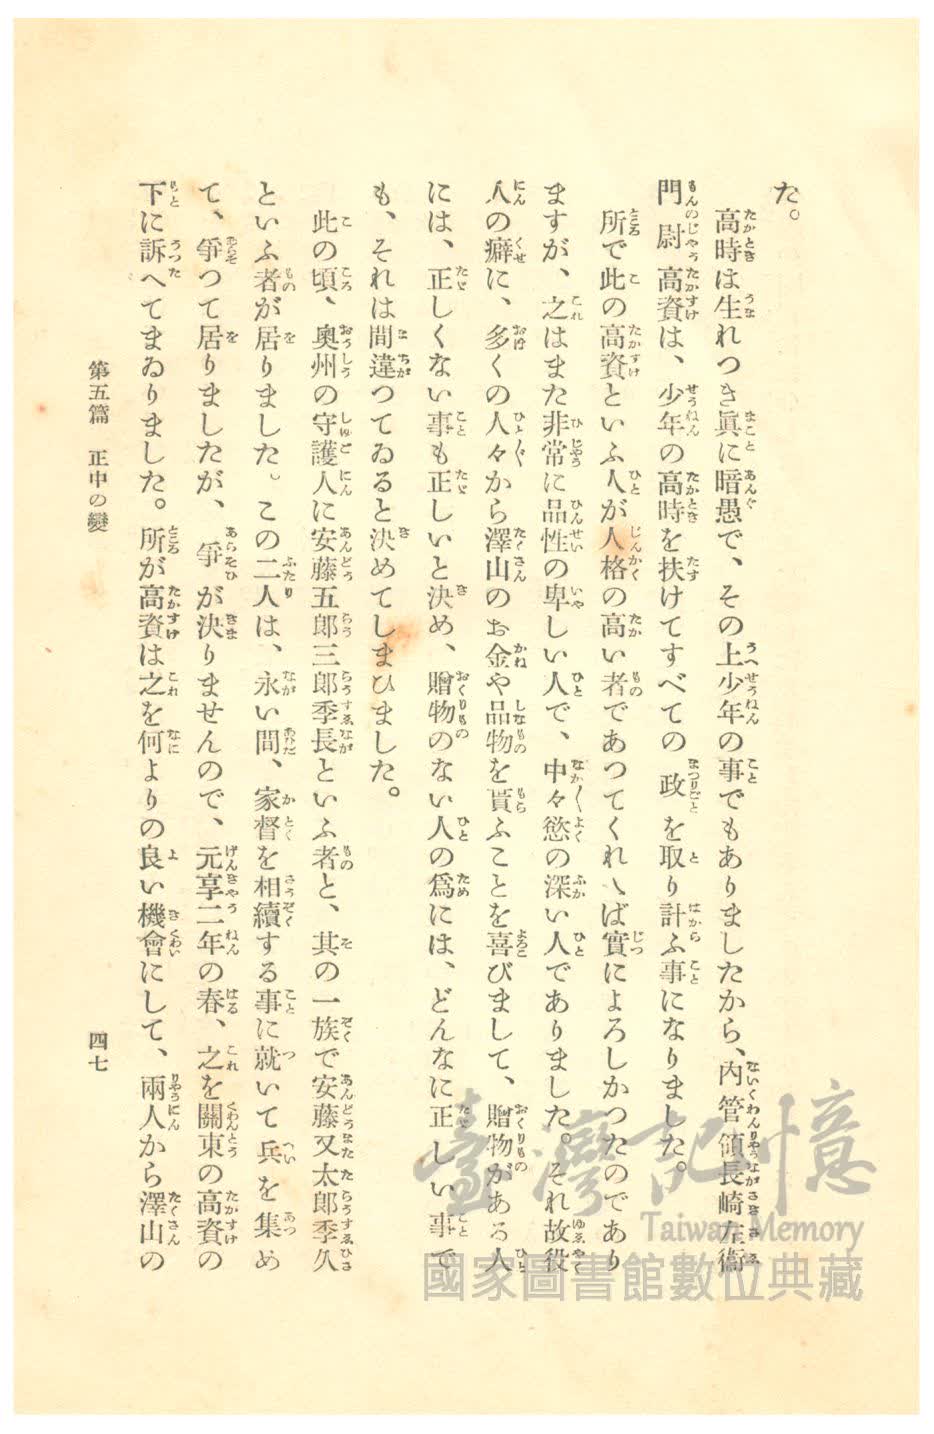 た。
高時は生れつき眞に暗愚で、その上少年の事でもありましたから、内管領長崎左衞
門尉高資は、少年の高時を扶けてすべての政を取り計ふ事になりました。
所で此の高資といふ人が人格の高い者であつてくれゝば實によろしかつたのであり
ますが、之はまた非常に品性の卑しい人で、中々慾の深い人でありました。それ故役
人の癖に、多くの人々から澤山のお金や品物を貰ふことを喜びまして、贈物がある人
には、正しくない事も正しいと決め、贈物のない人の爲には、どんなに正しい事で
も、それは間違つてゐると決めてしまひました。
此の頃、奥州の守護人に安藤五郎三郎季長といふ者と、其の一族で安藤又太郎季久
といふ者が居りました。この二人は、永い間、家督を相續する事に就いて兵を集め
て、爭つて居りましたが、爭が決りませんので、元享二年の春、之を關東の高資の
下に訴へてまゐりました。所が高資は之を何よりの良い機會にして、兩人から澤山の
第五篇 正中の變
四七
臺灣記憶
Taiwan Memory
國家圖書館數位典藏